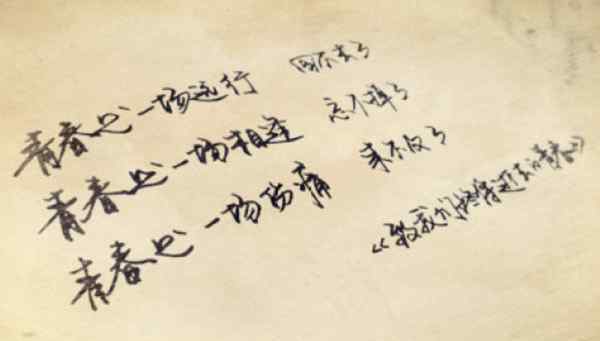 青春是一场远行 回不去了
青春是一场相逢 忘不掉了
青春是一场伤痛 来不及了
《致我们终将逝去的青春》